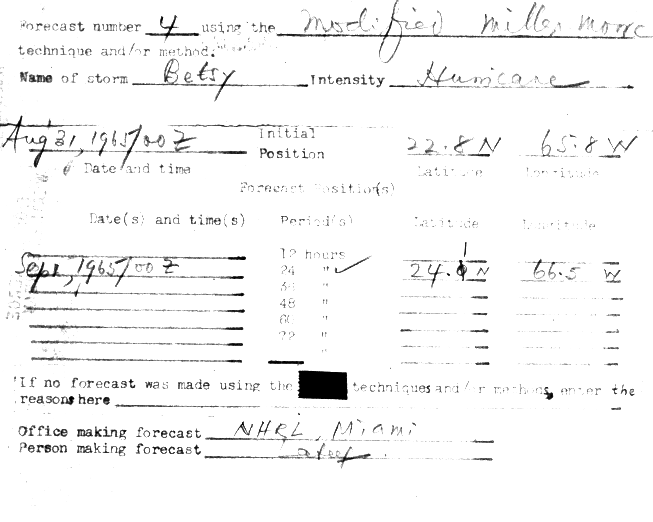 Forecast number 4 using the Modified Miller Moore
technique and/or method.
Name of storm Betsy Intensity Hurricane
Aug 31, 1965/00 Z Initial Position 22.8 N 65.8 W
Date and time Latitude Longitude
Forecast Position(s)
Date(s) and time(s) Period(s) Latitude Longitude
12 hours
Sept 1, 1965/00 Z 24 " ✓ 24.1 N 66.5 W
36 "
48 "
60 "
72 "
"If no forecast was made using the techniques and/or methods, enter the
reasons here
Office making forecast NHRL, Miami
Person making forecast